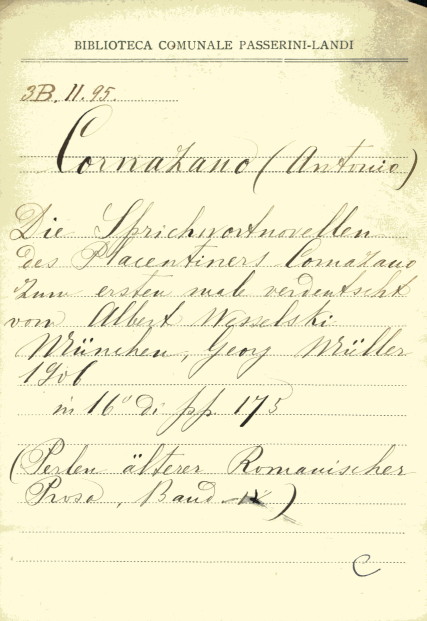 BIBLIOTECA COMUNALE PASSERINI-LANDI
3B. 11. 95.
Cornazano (Antonio)
Die Sprichwortnovellen
des Placentiners Cornazano
zum ersten male verdeutscht
von Albert Wesselski
München, Georg Müller
1906
in 16° di pp. 175
(Perlen älterer Romanischer
Prosa, Band )
C